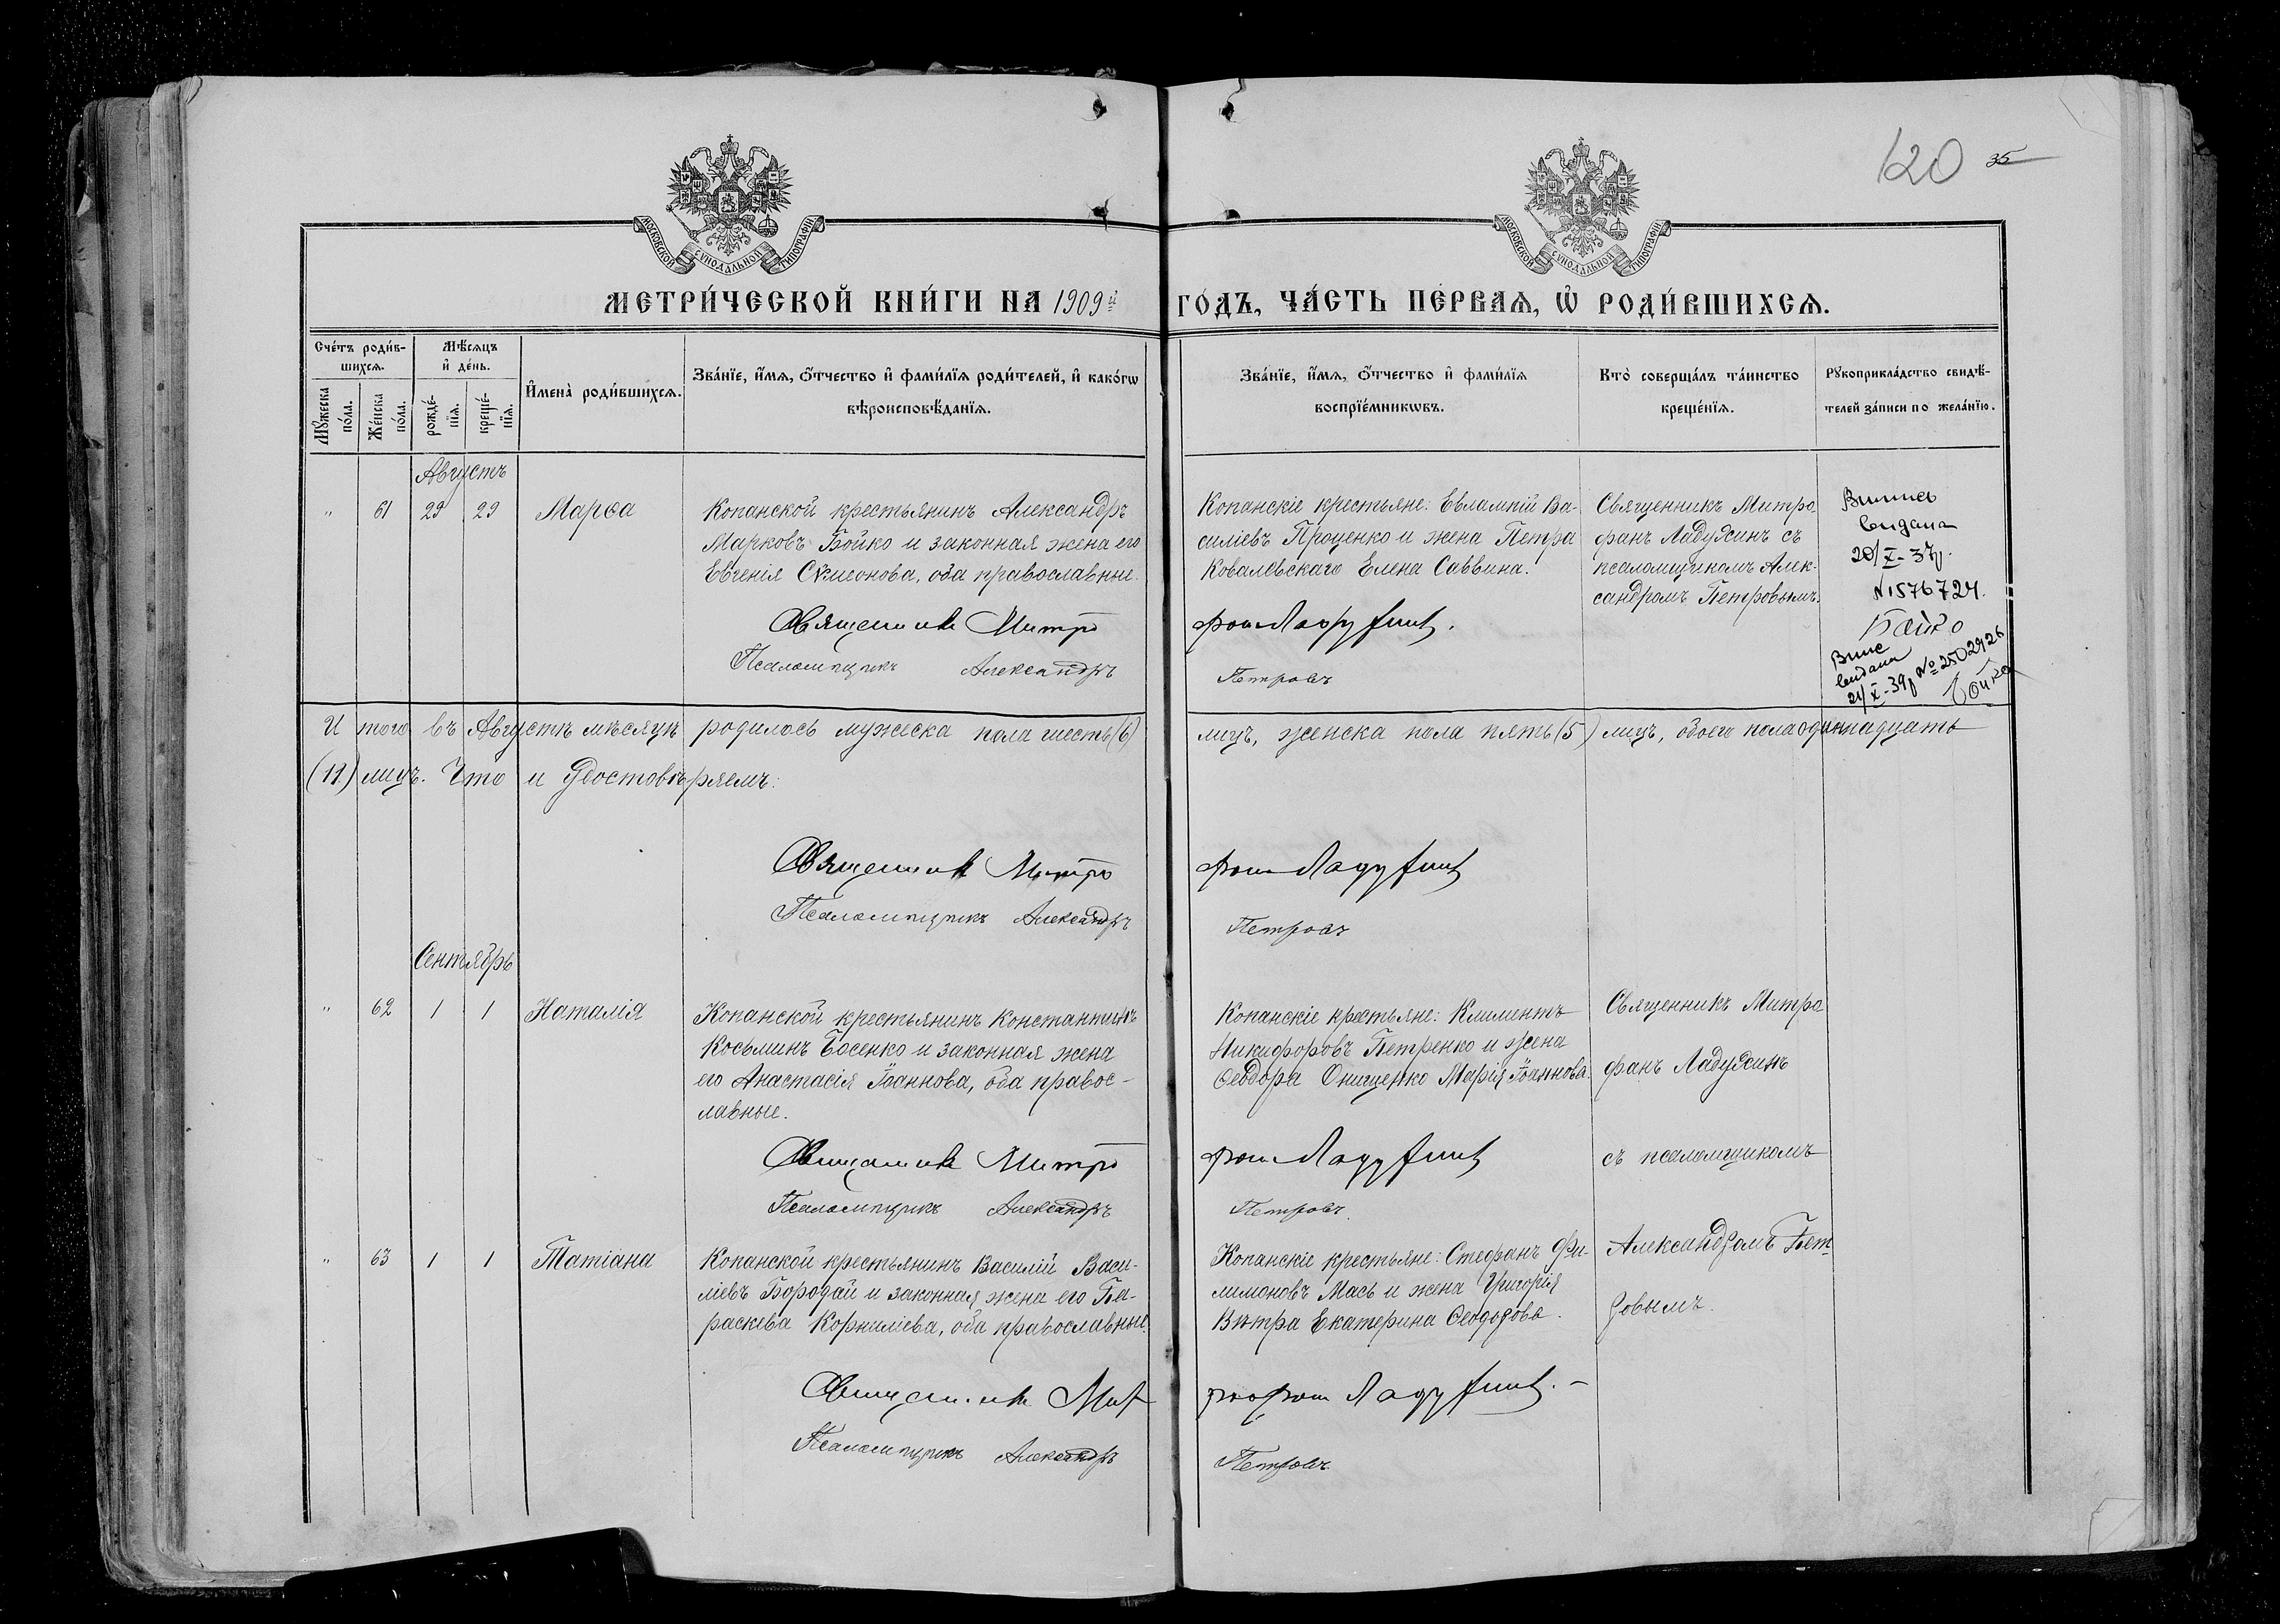 120 35
МОСКОВСКОЙ СѴНОДАЛЬНОЙ ТИПОГРАФІИ
МОСКОВСКОЙ СѴНОДАЛЬНОЙ ТИПОГРАФІИ
МЕТРИ́ЧЕСКОЙ КНИ́ГИ НА 1909й ГО́ДЪ, ЧА́СТЬ ПЕ́РВАЯ, Ѡ҆ РОДИ́ВШИХСѦ.
Сче́тъ роди́в-
шихсѧ.
Мꙋ́жеска по́ла.
Же́нска по́ла.
Мѣ́сѧцъ
и҆ де́нь.
рожде́-
нїѧ.
креще́-
нїѧ.
И҆мена̀ роди́вшихсѧ.
Зва́нїе, и҆́мѧ, ѻ҆́тчество и҆ фами́лїѧ роди́телей, и҆ како́гѡ
вѣроисповѣ́данїѧ.
Зва́нїе, и҆́мѧ, ѻ҆́тчество и҆ фами́лїѧ
воспрїе́мникѡвъ.
Кто̀ соверша́лъ та́инство
креще́нїѧ.
Рꙋкоприкла́дство свидѣ́-
телей за́писи по жела́нїю.
Августъ
" 61 29 29 Марѳа
Копанской крестьянинъ Александръ
Марковъ Бойко и законная жена его
Евгенія Сѵмеонова, оба православные.
Священникъ Митро
Псаломщикъ Александръ
Копанскіе крестьяне: Евлампій Ва-
силіевъ Проценко и жена Петра
Ковалевскаго Елена Саввина.
фанъ Ладужинъ.
Петровъ
Священникъ Митро
фанъ Ладужинъ съ
псаломщикомъ Алек-
сандромъ Петровымъ.
видана
20/X-37р.
N1576724.
Бойко
видана
21/X-39р №2502926
Бойко
И того въ Августѣ мѣсяцѣ родилось мужеска пола шесть (6) лицъ, женска пола пять (5) лицъ, обоего пола одиннадцать
(11) лицъ. Что и удостовѣряемъ:
Священникъ Митро фанъ Ладужинъ
Псаломщикъ Александръ Петровъ
Сентябрь
" 62 1 1 Наталія
Копанской крестьянинъ Константинъ
Косьминъ Босенко и законная жена
его Анастасія Іоаннова, оба правос-
лавные.
Священникъ Митро
Псаломщикъ Александръ
Копанскіе крестьяне: Климентъ
Никифоровъ Петренко и жена
Ѳеодора Онищенко Марія Іоаннова.
фанъ Ладужинъ
Петровъ.
Священникъ Митро
фанъ Ладужинъ
съ псаломщикомъ
Александромъ Пет-
ровымъ.
" 63 1 1 Татіана
Копанской крестьянинъ Василій Васи-
ліевъ Бородай и законная жена его Па-
раскева Корниліева, оба православные.
Священникъ Мит
Псаломщикъ Александръ
Копанскіе крестьяне: Стефанъ Фи-
лимоновъ Мась и жена Григорія
Вѣтра Екатерина Ѳеодорова.
рофанъ Ладужинъ.-
Петровъ